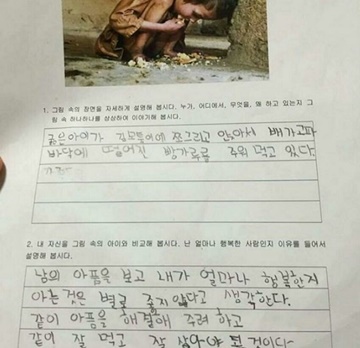 1. 그림 속의 장면을 자세하게 설명해 봅시다. 누가, 어디에서, 무엇을, 왜 하고 있는지 그
림 속 하나하나를 상상하여 이야기해 봅시다.
굶은아이가 길모퉁이에 쪼그리고 앉아서 배가고파
바닥에 떨어진 빵가루를 주워 먹고 있다.
2. 내 자신을 그림 속의 아이와 비교해 봅시다. 난 얼마나 행복한 사람인지 이유를 들어서
설명해 봅시다.
남의 아픔을 보고 내가 얼마나 행복한지
아는것은 별로 좋지 않다고 생각한다.
같이 아픔을 해결해 주려 하고
같이 잘 먹고 잘 살아야 될 것이다